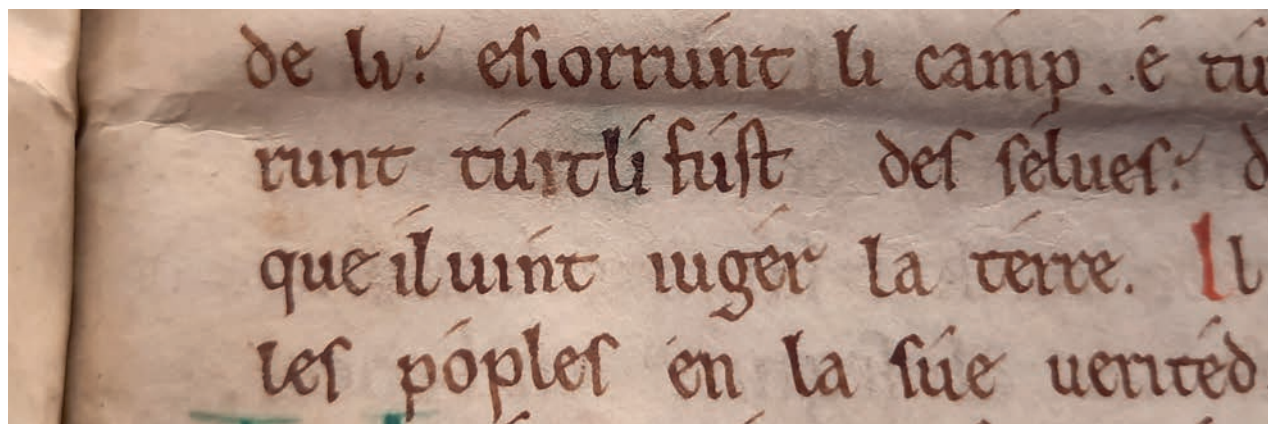 de li: esiorrunt li camp. é tu
runt tuit li fúst des sélues: d
que il uint iugér la térre. Il
les póples én la súe ueritéd